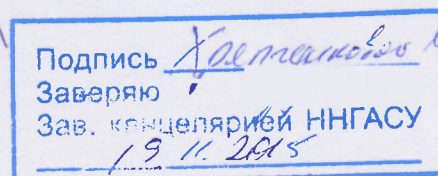 Подпись
Заверяю
Зав. канцелярией ННГАСУ
19 11. 2015